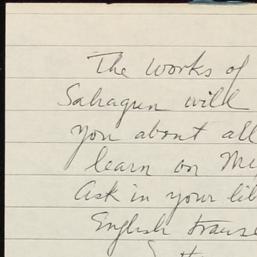 The works of
Sahagun will
you about all
learn on
Ask in your
English